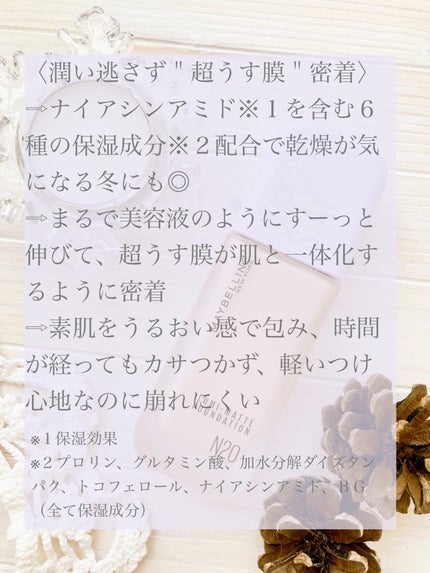 〈潤い逃さず＂超うす膜＂密着〉
⇨ナイアシンアミド※１を含む６
種の保湿成分※２配合で乾燥が気
になる冬にも◎
⇨まるで美容液のようにすーっと
伸びて、超うす膜が肌と一体化す
るように密着
⇨素肌をうるおい感で包み、時間
が経ってもカサつかず、軽いつけ
心地なのに崩れにくい
※１保湿効果
※２プロリン、グルタミン酸、加水分解ダイズタン
パク、トコフェロール、ナイアシンアミド、ＢＧ
（全て保湿成分）
MAYBELLINE
NEW YORK
FOUNDATION
N20